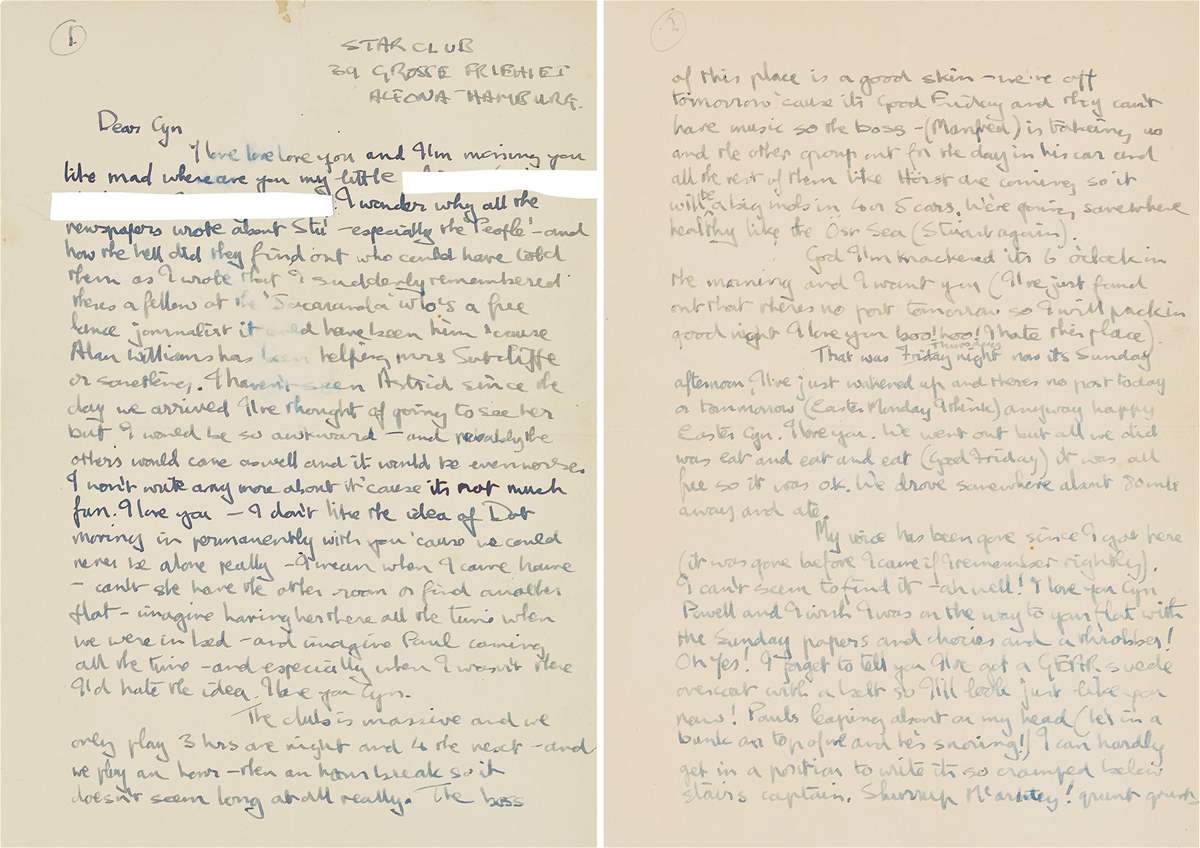 1.
STAR CLUB
39 GROSSE FRIEHIET
ALTONA-HAMBURG.
Dear Cyn
I love love love you and I'm missing you
like mad where are you my little
I wonder why all the
newspapers wrote about Stu - especially the 'People' - and
how the hell did they find out who could have told
them as I wrote that I suddenly remembered
theres a fellow at the 'Jacaranda' who's a free
lance journalist it could have been him 'cause
Alan Williams has been helping mrs Sutcliffe
or something. I haven't seen Astrid since the
day we arrived I've thought of going to see her
but I would be so awkward - and probably the
others would come aswell and it would be even worse.
I won't write any more about it 'cause its not much
fun. I love you - I don't like the idea of Dot
moving in permanently with you 'cause we could
never be alone really - I mean when I come home
- can't she have the other room or find another
flat - imagine having her there all the time when
we were in bed - and imagine Paul coming
all the time - and especially when I wasn't there
I'd hate the idea. I love you Cyn.
The club is massive and we
only play 3 hrs one night and 4 the next - and
we play an hour - then an hour break so it
doesn't seem long at all really. The boss
2.
of this place is a good skin - we're off
tomorrow 'cause its Good Friday and they can't
have music so the boss - (Manfred) is taking us
and the other group out for the day in his car and
all the rest of them like Horst are coming so it
will be a big mob in 4 or 5 cars. We're going somewhere
healthy like the Ost Sea (Stuart again).
God I'm knackered its 6 o'clock in
the morning and I want you (I've just found
out that there's no post tomorrow so I will pack in
good night I love you boo! hoo! I hate this place)
That was Friday Thursdays night now its Sunday
afternoon, I've just wakened up and theres no post today
or tommorrow (Easter Monday I think) anyway happy
Easter Cyn. I love you. We went out but all we did
was eat and eat and eat (Good Friday) it was all
free so it was ok. We drove somewhere about 80 mls
away and ate.
My voice has been gone since I got here
(it was gone before I came if I remember rightly).
I can't seem to find it - ah well! I love you Cyn
Powell and I wish I was on the way to your flat with
the Sunday papers and choccies and a throbber!
Oh Yes! I forgot to tell you I've got a GEAR suede
overcoat with a belt so I'll look just like you
now! Pauls leaping about on my head (he's in a
bunk on top of me and he's snoring!) I can hardly
get in a position to write its so cramped below
stairs captain. Shurrup Mcartney! grunt grunt